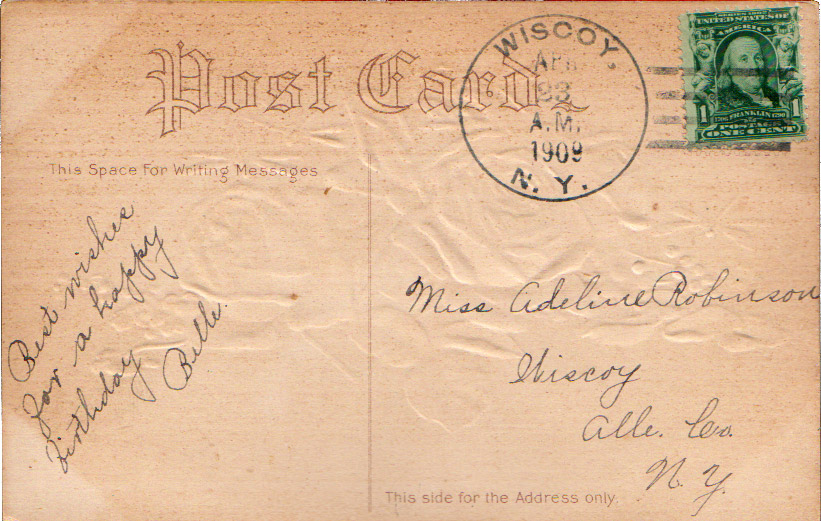 Post Card
WISCOY,
APR
A.M.
1909
N. Y.
SERIES 1902
UNITED STATES OF
AMERICA
1 FRANKLIN 1
POSTAGE
ONE CENT
This Space For Writing Messages
Best wishes
for a happy
birthday
Belle.
Miss Adeline Robinson
Wiscoy
Alle. Co.
N. Y.
This side for the Address only.